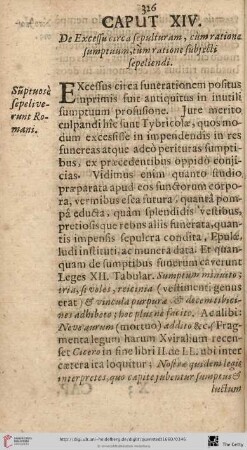 326
CAPUT XIV.
De Excessu circa sepulturam, cum ratione
sumptuum, tùm ratione subjecti
sepeliendi.
Sũptuosè
sepelive-
runt Ro-
mani.
EXcessus circa funerationem positus
imprimis fuit antiquitus in inutili
sumptuum profusione. Jure meritò
culpandi hîc sunt Tybricolæ, quos mo-
dum excessisse in impendendis in res
funereas atque adeò perituras sumpti-
bus, ex præcedentibus oppidò conji-
cias. Vidimus enim quanto studio
præparata apud eos functorum corpo-
ra, vermibus esca futura, quantâ pom-
pâ educta, quàm splendidis vestibus,
pretiosisque rebus aliis funerata, quan-
tis impensis sepulcra condita, Epulæ,
ludi instituti, ac munera data. Et quan-
quam de sumptibus funerum caverent
Leges XII. Tabular. Sumptum minuito;
tria, se voles, reicinia (vestimenti genus
erat) & vincula purpuræ & decem tibici-
nes adhibeto; hoc plus ne facito. Ac alibi:
Neve aurum (mortuo) addito &c. Frag-
menta legum harum Xviralium recen-
set Cicero in fine libri II. de LL. ubi inter
cætera ita loquitur; Nostræ quidem legis
interpretes, quo capite jubentur sumptus &
luctum
http://digi.ub.uni-heidelberg.de/diglit/quenstedt1660/0346
The Getty